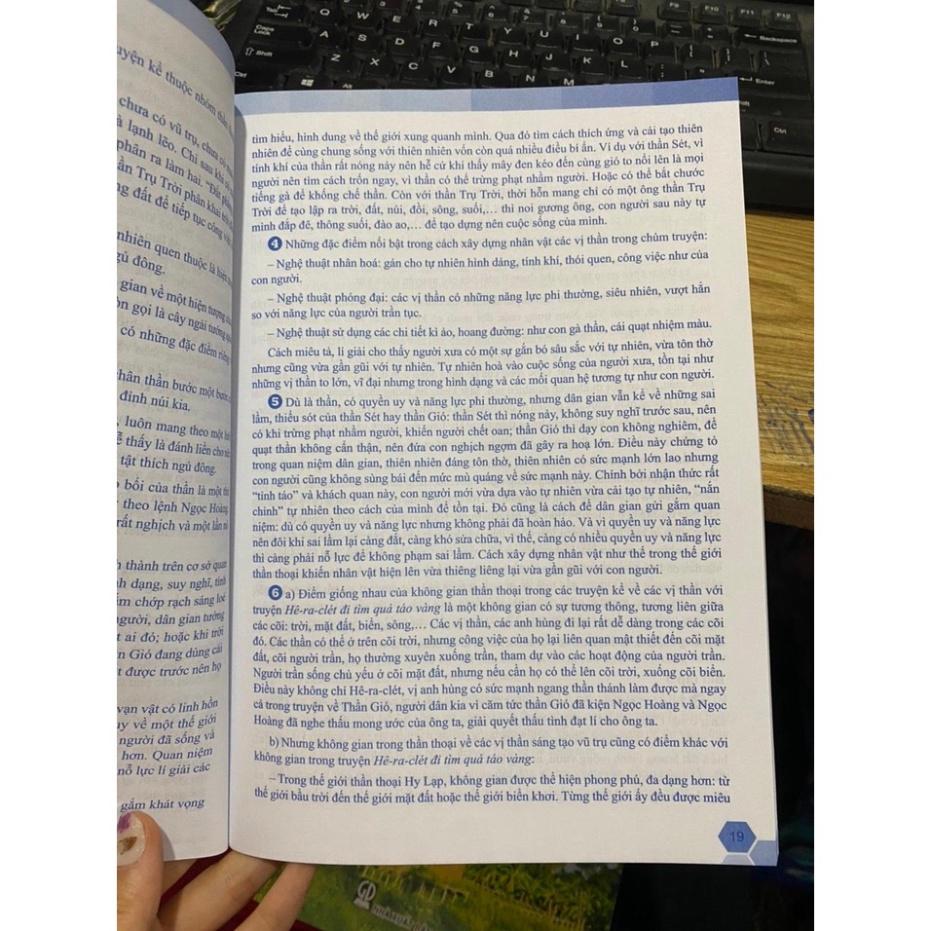 uyện kể thuộc nhóm thần
chưa có vũ trụ, chưa có
à lạnh lẽo. Chỉ sau khi
phân ra làm hai. "Đất phẳng
ần Trụ Trời phân khai trời
ng đất để tiếp tục công việc
nhiên quen thuộc là hiện
gủ đông.
gian về một hiện tượng
òn gọi là cây ngải tướng quân
có những đặc điểm riêng
chân thần bước một bước
đỉnh núi kia.
luôn mang theo một
ễ thấy là đánh liền cho
tật thích ngủ đông.
bối của thần là một thứ
theo lệnh Ngọc Hoàng
rất nghịch và một lần nó
h thành trên cơ sở quan
nh dạng, suy nghĩ, tính
ấm chớp rạch sáng loé
người, dân gian tưởng
t ai đó; hoặc khi trời
n Gió đang dùng cái
t được trước nên họ
vạn vật có linh hồn
uy về một thế giới
người đã sống và
hơn. Quan niệm
nỗ lực lí giải các
gắm khát vọng
tìm hiểu, hình dung về thế giới xung quanh mình. Qua đó tìm cách thích ứng và cải tạo thiên
nhiên để cùng chung sống với thiên nhiên vốn còn quá nhiều điều bí ẩn. Ví dụ với thần Sét, vì
tính khí của thần rất nóng nảy nên hễ cứ khi thấy mây đen kéo đến cùng gió to nổi lên là mọi
người nên tìm cách trốn ngay, vì thần có thể trừng phạt nhầm người. Hoặc có thể bắt chước
tiếng gà để khống chế thần. Còn với thần Trụ Trời, thời hỗn mang chỉ có một ông thần Trụ
Trời để tạo lập ra trời, đất, núi, đồi, sông, suối,… thì noi gương ông, con người sau này tự
mình đắp đê, thông suối, đào ao,… để tạo dựng nên cuộc sống của mình.
4 Những đặc điểm nổi bật trong cách xây dựng nhân vật các vị thần trong chùm truyện:
– Nghệ thuật nhân hoá: gán cho tự nhiên hình dáng, tính khí, thói quen, công việc như của
con người.
– Nghệ thuật phóng đại: các vị thần có những năng lực phi thường, siêu nhiên, vượt hẳn
so với năng lực của người trần tục.
– Nghệ thuật sử dụng các chi tiết kì ảo, hoang đường: như con gà thần, cái quạt nhiệm màu.
Cách miêu tả, lí giải cho thấy người xưa có một sự gắn bó sâu sắc với tự nhiên, vừa tôn thờ
nhưng cũng vừa gần gũi với tự nhiên. Tự nhiên hoà vào cuộc sống của người xưa, tồn tại như
những vị thần to lớn, vĩ đại nhưng trong hình dạng và các mối quan hệ tương tự như con người.
5 Dù là thần, có quyền uy và năng lực phi thường, nhưng dân gian vẫn kể về những sai
lầm, thiếu sót của thần Sét hay thần Gió: thần Sét thì nóng nảy, không suy nghĩ trước sau, nên
có khi trừng phạt nhầm người, khiến người chết oan; thần Gió thì dạy con không nghiêm, để
quạt thần không cẩn thận, nên đứa con nghịch ngợm đã gây ra hoạ lớn. Điều này chứng tỏ
trong quan niệm dân gian, thiên nhiên đáng tôn thờ, thiên nhiên có sức mạnh lớn lao nhưng
con người cũng không sùng bái đến mức mù quáng về sức mạnh này. Chính bởi nhận thức rất
“tỉnh táo” và khách quan này, con người mới vừa dựa vào tự nhiên vừa cải tạo tự nhiên, “nắn
chỉnh” tự nhiên theo cách của mình để tồn tại. Đó cũng là cách để dân gian gửi gắm quan
niệm: dù có quyền uy và năng lực nhưng không phải đã hoàn hảo. Và vì quyền uy và năng lực
nên đôi khi sai lầm lại càng đắt, càng khó sửa chữa, vì thế, càng có nhiều quyền uy và năng lực
thì càng phải nỗ lực để không phạm sai lầm. Cách xây dựng nhân vật như thế trong thế giới
thần thoại khiến nhân vật hiện lên vừa thiêng liêng lại vừa gần gũi với con người.
6 a) Điểm giống nhau của không gian thần thoại trong các truyện kể về các vị thần với
truyện Hê-ra-clét đi tìm quả táo vàng là một không gian có sự tương thông, tương liên giữa
các cõi: trời, mặt đất, biển, sông,… Các vị thần, các anh hùng đi lại rất dễ dàng trong các cõi
đó. Các thần có thể ở trên cõi trời, nhưng công việc của họ lại liên quan mật thiết đến cõi mặt
đất, cõi người trần, họ thường xuyên xuống trần, tham dự vào các hoạt động của người trần.
Người trần sống chủ yếu ở cõi mặt đất, nhưng nếu cần họ có thể lên cõi trời, xuống cõi biển.
Điều này không chỉ Hê-ra-clét, vị anh hùng có sức mạnh ngang thần thánh làm được mà ngay
cả trong truyện về Thần Gió, người dân kia vì căm tức thần Gió đã kiện Ngọc Hoàng và Ngọc
Hoàng đã nghe thấu mong ước của ông ta, giải quyết thấu tình đạt lí cho ông ta.
b) Nhưng không gian trong thần thoại về các vị thần sáng tạo vũ trụ cũng có điểm khác với
không gian trong truyện Hê-ra-clét đi tìm quả táo vàng:
– Trong thế giới thần thoại Hy Lạp, không gian được thể hiện phong phú, đa dạng hơn: từ
thế giới bầu trời đến thế giới mặt đất hoặc thế giới biển khơi. Từng thế giới ấy đều được miêu
19